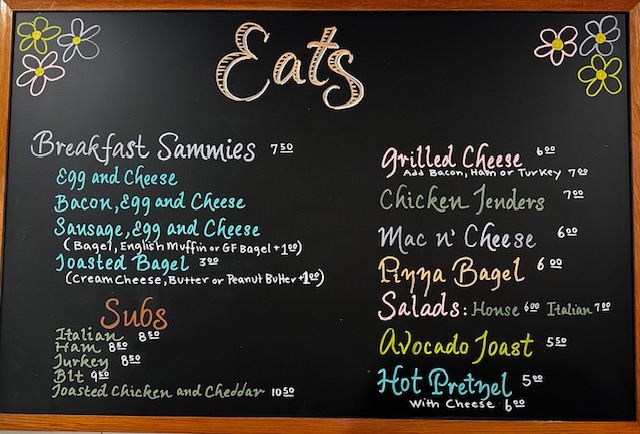 Eats
Breakfast Sammies 7 50
Egg and Cheese
Bacon, Egg and Cheese
Sausage, Egg and Cheese
(Bagel, English Muffin or GF Bagel +1 00)
Toasted Bagel 3 00
(Cream Cheese, Butter or Peanut Butter +1 00)
Subs
Italian 8 50
Ham 8 50
Turkey 8 50
Blt 9 50
Toasted Chicken and Cheddar 10 50
Grilled Cheese 6 00
Add Bacon, Ham or Turkey 7 00
Chicken Tenders 7 00
Mac n' Cheese 6 00
Pizza Bagel 6 00
Salads: House 6 00 Italian 7 00
Avocado Toast 5 50
Hot Pretzel 5 00
With Cheese 6 00